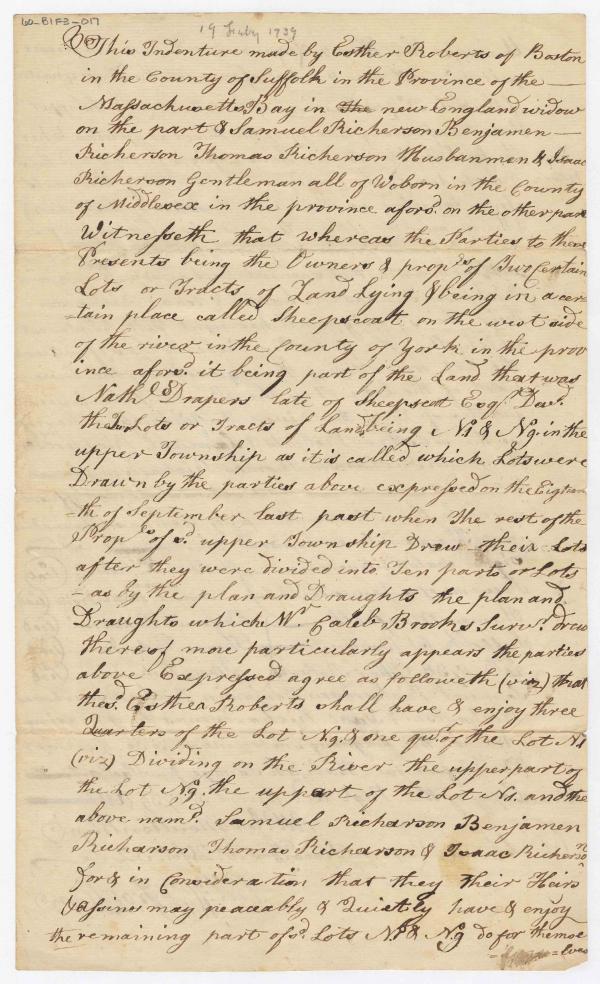 60-B1F3-017
19 July 1739
This Indenture made by Esther Roberts of Boston
in the County of Suffolk in the Province of the
Massachusetts Bay in the new England widow
on the part & Samuel Richerson Benjamen
Richerson Thomas Richerson Husbanmen & Isaac
Richerson Gentleman all of Woborn in the County
of Middlesex in the province aforsd. on the other part
Witnesseth that whereas the Parties to these
Presents being the Owners & propes of Two certain
Lots or Tracts of Land Lying & being in a cer
-tain place called Sheepscoat on the west side
of the river in the County of York in the prov
ince aforsd. it being part of the Land that was
Nathl. Drapers late of Sheepscot Esqr. Decd.
the Lots or Tracts of Land being No1 & No9. in the
upper Township as it is called which Lots were
Drawn by the parties above expressed on the Eigteen
-th of September last past when The rest of the
Propes of sd. upper Township Drew their Lots
after they were divided into Ten parts or Lots
- as by the plan and Draughts the plan and
Draughts which Mr. Caleb Brooks Survr. drew
thereof more particularly appears the parties
above Expressed agree as followeth (viz) that
the sd. Esther Roberts shall have & enjoy three
Quarters of the Lot No9. & one qurt of the Lot No1
(viz) Dividing on the River the upper part of
the Lot No9. the uppart of the Lot No1. and the
above namd. Samuel Richarson Benjamen
Richarson Thomas Richarson & Isaac Richerson
for & in Consideration that they their Heirs
& assines may peaceably & Quietly have & enjoy
the remaining part of sd. Lots No1 & No9 do for themse
=lves